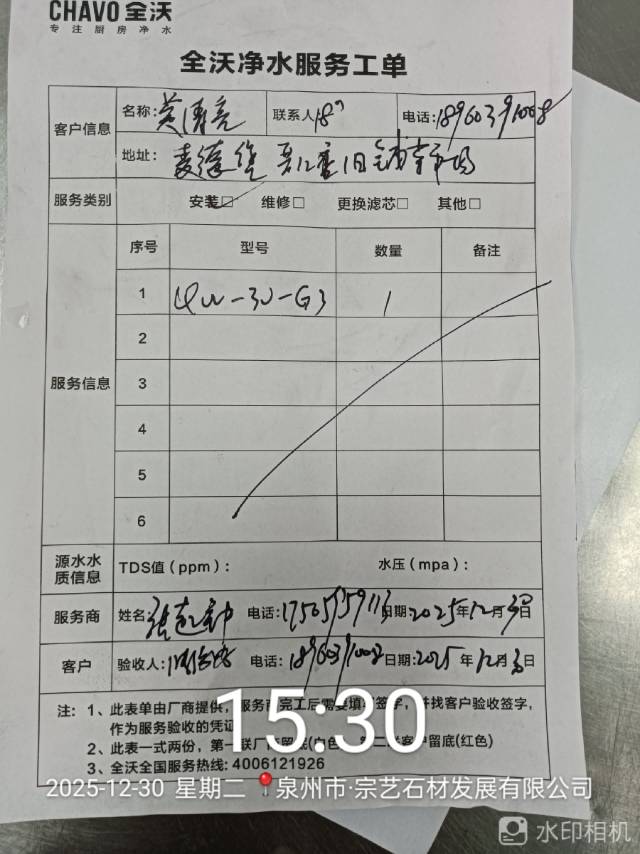 CHAVO 全沃
专注厨房净水
全沃净水服务工单
客户信息
名称:
联系人
电话:18960391008
地址:
服务类别
安装□ 维修□ 更换滤芯□ 其他□
服务信息
序号 型号 数量 备注
1 QW-3U-G3 1
2
3
4
5
6
源水水质信息
TDS值(ppm): 水压(mpa):
服务商
姓名 电话: 日期:2025年12月30日
客户
验收人: 电话:18960391008 日期:2025年12月30日
注: 1、此表单由厂商提供,服务商完工后需要填单签字,并找客户验收签字,
作为服务验收的凭证
2、此表一式两份,第一联厂商留底(白色),第二联客户留底(红色)
3、全沃全国服务热线:4006121926
15:30
2025-12-30 星期二 泉州市·宗艺石材发展有限公司
水印相机